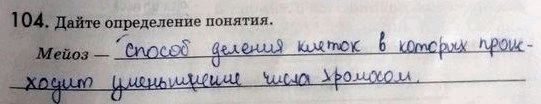 104. Дайте определение понятия.
Мейоз — способ деления клеток в которых проис-
ходит уменьшение числа хромосом.